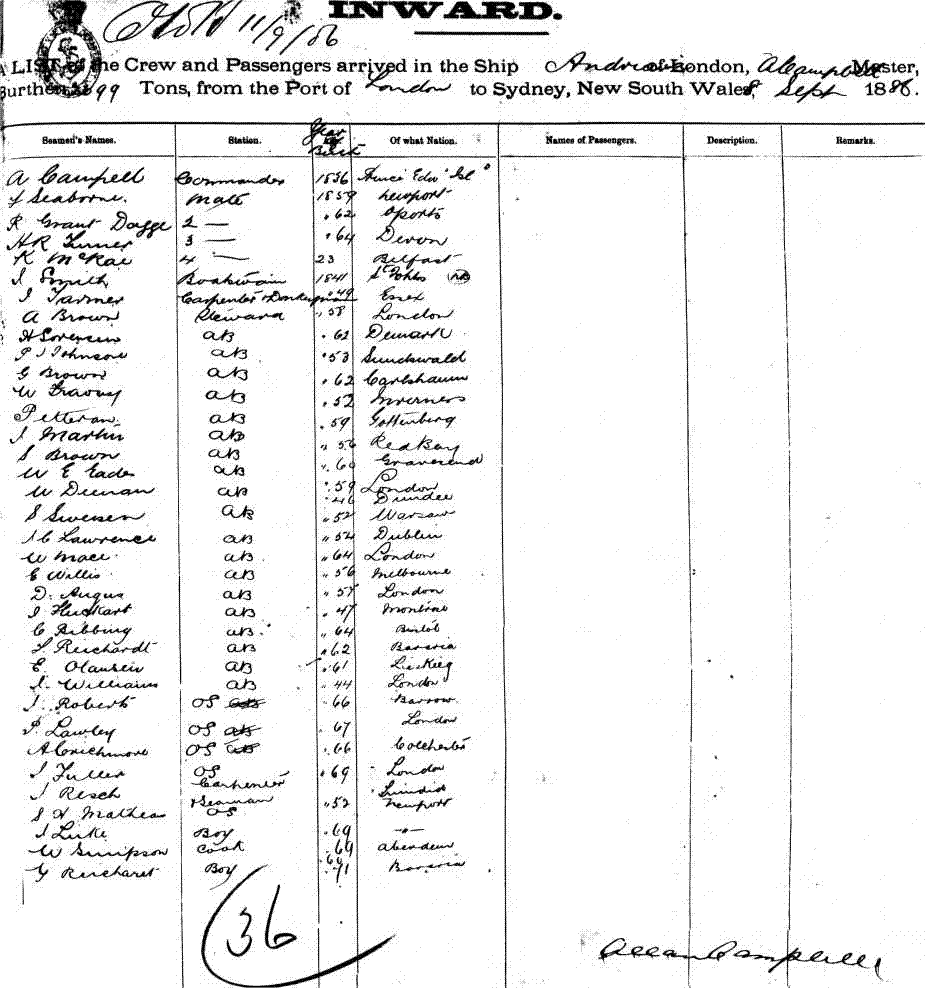 INWARD.
11/9/86
A LIST of the Crew and Passengers arrived in the Ship of London, A Campbell Master,
Burthen Tons, from the Port of London to Sydney, New South Wales, 8 Sept 1886.
Seamen's Names. Station. Year of Birth Of what Nation. Names of Passengers. Description. Remarks.
A Campell Commander 1836
J Seaborne. Mate 1859 Newport
R Grant 2 — .62
HR Turner 3 — .64 Devon
K McRae 4 — 23 Belfast
J Smith Boatswain 1841 St Johns NB
J Farmer Carpenter .49 Essex
A Brown Steward .58 London
H Sorensen AB .62 Denmark
P J Johnson AB .53 Sundswald
G Brown AB .62 Carlshamn
W AB .52 Inverness
Petterson AB .59 Gottenberg
J Martin AB .56 Red Bay
S Brown AB .60 Gravesend
W E Eades AB .59 London
W Deuman AB .46 Dundee
S Swensen AB .52 Warsaw
J C Lawrence AB .54 Dublin
W Mace AB .64 London
E Willis AB .56 Melbourne
D. Angus AB .57 London
J AB .47 Montrose
C Bibbing AB .64 Bristol
L Reichardt AB .62 Bavaria
E. Olausen AB .61
J. Williams AB .44 London
J. Roberts OS AB .66 Barrow
P. Lawley OS AB .67 London
A OS AB .66 Colchester
J Fuller OS .69 London
J Resch Carpenter
& Seaman .52 Newport
S H Mathews OS
J Luke Boy .69 -"-
W Simpson Cook .69 Aberdeen
G Boy .71 Bavaria
36
Allan Campbell